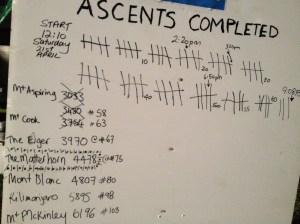 ASCENTS COMPLETED
START
12:10
Saturday
21st
APRIL
2:20pm
10
20
6:50pm
40
50
60
9:08
Mt Aspiring 3033
Mt Cook 3754 #63
#58
The Eiger 3970 @#67
The Matterhorn 4478 @#75
Mont Blanc 4807 #80
Kilimanjaro 5895 #98
Mt McKinley 6196 #103